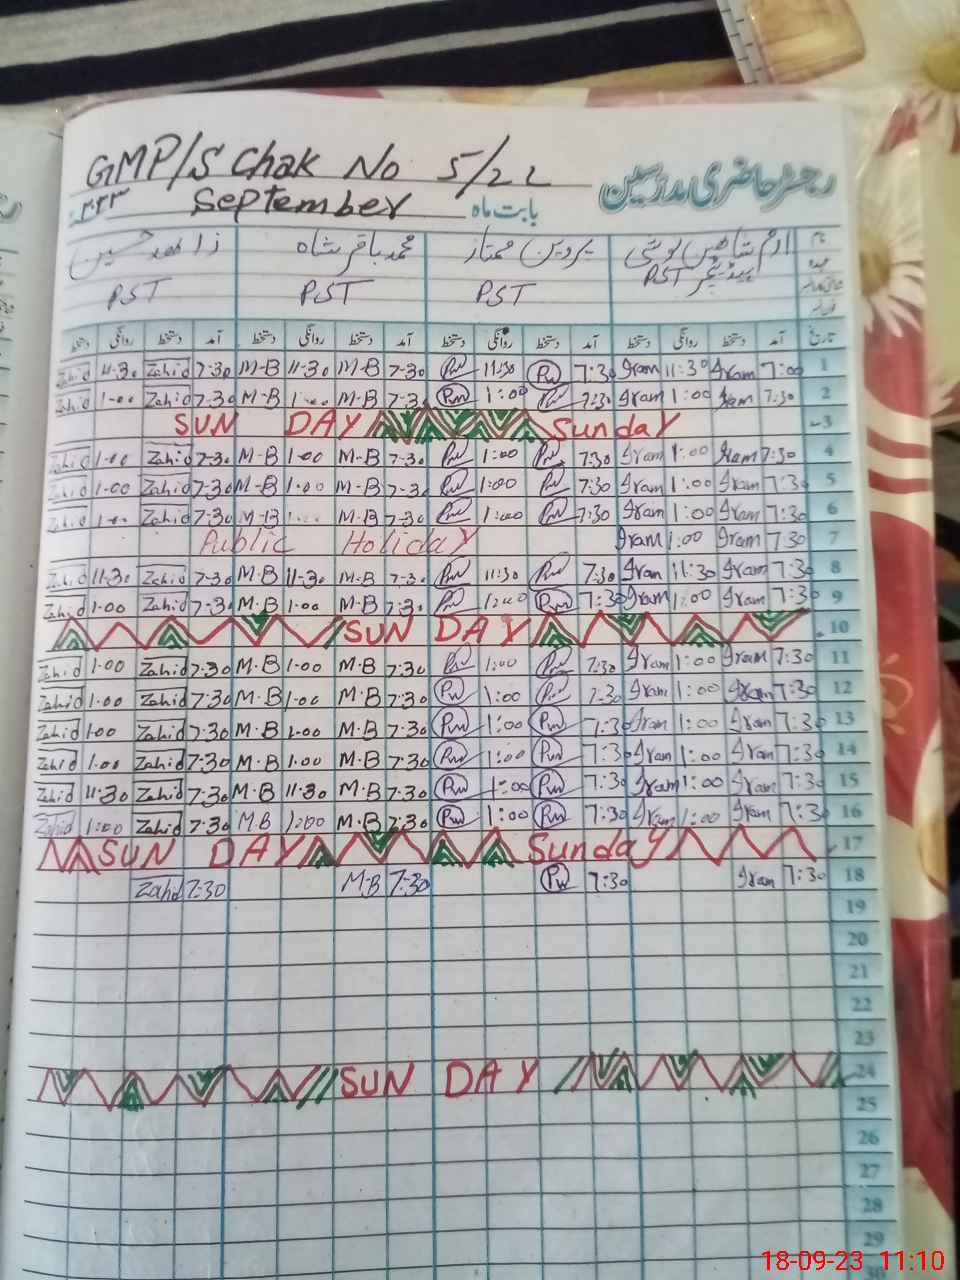 GMP/S Chak No 5/22
رجسٹر حاضری مدرسین
September بابت ماہ
زاھد حسین محمد باقر شاہ پروین ممتاز ارم شاھین
PST PST PST PST ہیڈ ٹیچر
دستخط روانگی دستخط آمد دستخط روانگی دستخط آمد دستخط روانگی دستخط آمد دستخط روانگی دستخط آمد تاریخ
Zahid 11-30 Zahid 7-30 M-B 11-30 M-B 7-30 Pw 11:30 Pw 7:30 Iram 11:30 Iram 7:00 1
Zahid 1-00 Zahid 7-30 M-B 1-00 M-B 7-30 Pw 1:00 Pw 7:30 Iram 1:00 Iram 7:30 2
SUN DAY Sunday 3
Zahid 1-00 Zahid 7-30 M-B 1-00 M-B 7-30 Pw 1:00 Pw 7:30 Iram 1:00 Iram 7:30 4
Zahid 1-00 Zahid 7-30 M-B 1-00 M-B 7-30 Pw 1:00 Pw 7:30 Iram 1:00 Iram 7:30 5
Zahid 1-00 Zahid 7-30 M-B M-B 7-30 Pw 1:00 Pw 7:30 Iram 1:00 Iram 7:30 6
Public Holiday Iram 1:00 Iram 7:30 7
Zahid 11-30 Zahid 7-30 M-B 11-30 M-B 7-30 Pw 11:30 Pw 7:30 Iram 11:30 Iram 7:30 8
Zahid 1-00 Zahid 7-30 M-B 1-00 M-B 7-30 Pw 1:00 Pw 7:30 Iram 1:00 Iram 7:30 9
SUN DAY 10
Zahid 1-00 Zahid 7-30 M-B 1-00 M-B 7-30 Pw 1:00 Pw 7:30 Iram 1:00 Iram 7:30 11
Zahid 1-00 Zahid 7-30 M-B 1-00 M-B 7-30 Pw 1:00 Pw 7:30 Iram 1:00 Iram 7:30 12
Zahid 1-00 Zahid 7-30 M-B 1-00 M-B 7-30 Pw 1:00 Pw 7:30 Iram 1:00 Iram 7:30 13
Zahid 1-00 Zahid 7-30 M-B 1-00 M-B 7-30 Pw 1:00 Pw 7:30 Iram 1:00 Iram 7:30 14
Zahid 11-30 Zahid 7-30 M-B 11-30 M-B 7-30 Pw 1:00 Pw 7:30 Iram 1:00 Iram 7:30 15
Zahid 1:00 Zahid 7-30 M-B 1:00 M-B 7-30 Pw 1:00 Pw 7:30 Iram 1:00 Iram 7:30 16
SUN DAY Sunday 17
Zahid 7-30 M-B 7-30 Pw 7:30 Iram 7:30 18
19
20
21
22
23
SUN DAY 24
25
26
27
28
29
30
18-09-23 11:10